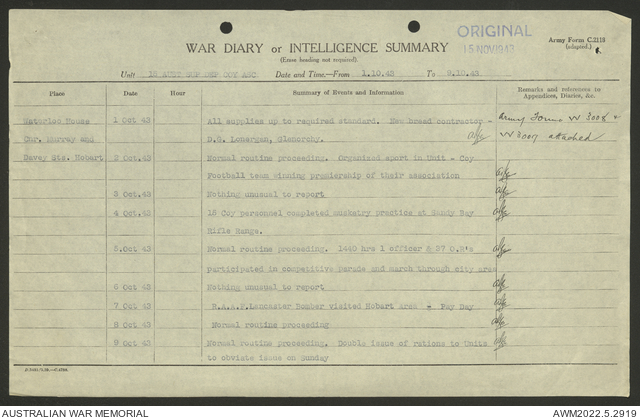 ORIGINAL
15 NOV 1943
Army Form C.2118
(adapted.)
WAR DIARY or INTELLIGENCE SUMMARY
(Erase heading not required).
Unit 15 AUST SUP DEP COY ASC Date and Time—From 1.10.43 To 9.10.43
Place Date Hour Summary of Events and Information Remarks and references to Appendices, Diaries, &c.
Waterloo House 1 Oct 43 All supplies up to required standard. New bread contractor - Army Forms W 3008 &
Cnr. Murray and D.G. Lonergan, Glenorchy. W 3009 attached
Davey Sts. Hobart 2 Oct.43 Normal routine proceeding. Organised sport in Unit - Coy
Football team winning premiership of their association
3 Oct 43 Nothing unusual to report
4 Oct.43 18 Coy personnel completed musketry practice at Sandy Bay
Rifle Range.
5.Oct 43 Normal routine proceeding. 1440 hrs 1 officer & 37 O.R's
participated in competitive Parade and march through city area
6 Oct 43 Nothing unusual to report
7 Oct 43 R.A.A.F. Lancaster Bomber visited Hobart area - Pay Day
8 Oct 43 Normal routine proceeding
9 Oct 43 Normal routine proceeding. Double issue of rations to Units
to obviate issue on Sunday
AUSTRALIAN WAR MEMORIAL AWM2022.5.2919